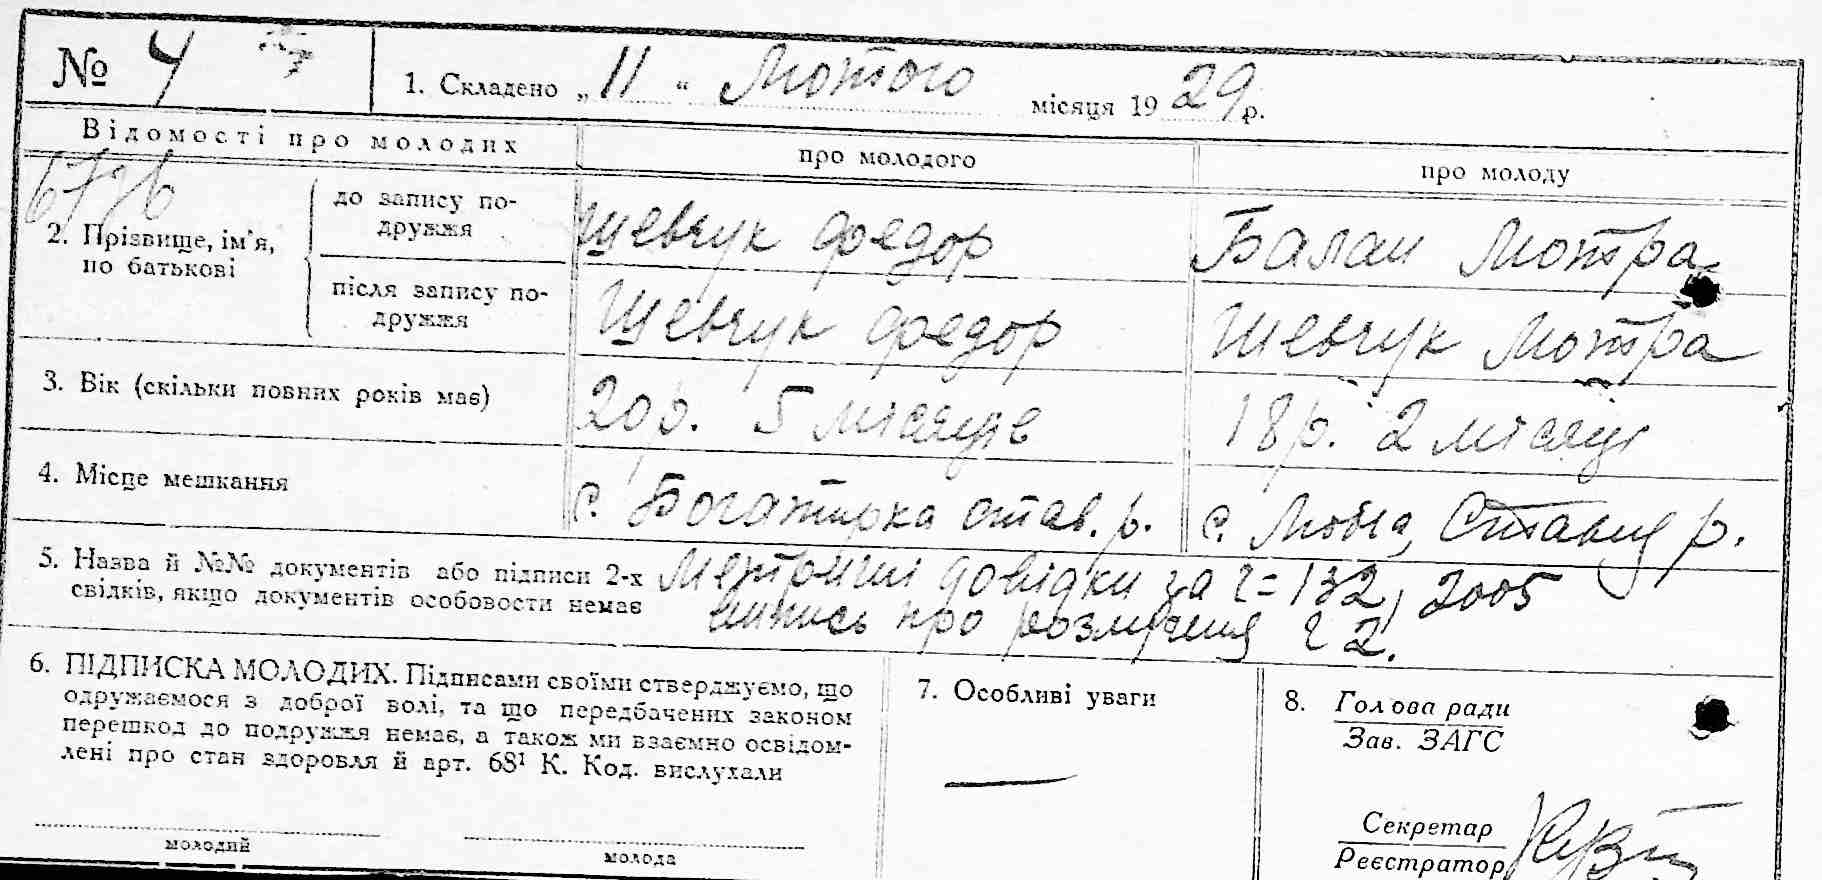 № 4
1. Складено „11“ Лютого місяця 1929 р.
Відомості про молодих
про молодого
про молоду
6776
2. Прізвище, ім'я,
по батькові
до запису по-
дружжя
Шевчук Федор
Балан Мотра
після запису по-
дружжя
Шевчук Федор
Шевчук Мотра
3. Вік (скільки повних років має)
20 р. 5 місяців
18 р. 2 місяці
4. Місце мешкання
с. Богатирка став. р.
с. Люба, Ставищ р.
5. Назва й №№ документів або підписи 2-х
свідків, якщо документів особовости немає
Метричні довідки за ч= 132, 2005
випись про розлучення ч 2.
6. ПІДПИСКА МОЛОДИХ. Підписами своїми стверджуємо, що
одружаємося з доброї волі, та що передбачених законом
перешкод до подружжя немає, а також ми взаємно освідом-
лені про стан здоровля й арт. 68¹ К. Код. вислухали
молодий
молода
7. Особливі уваги
8. Голова ради
Зав. ЗАГС
Секретар
Реєстратор